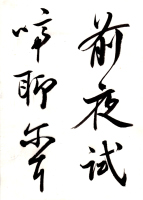 前夜试
啼聊尔